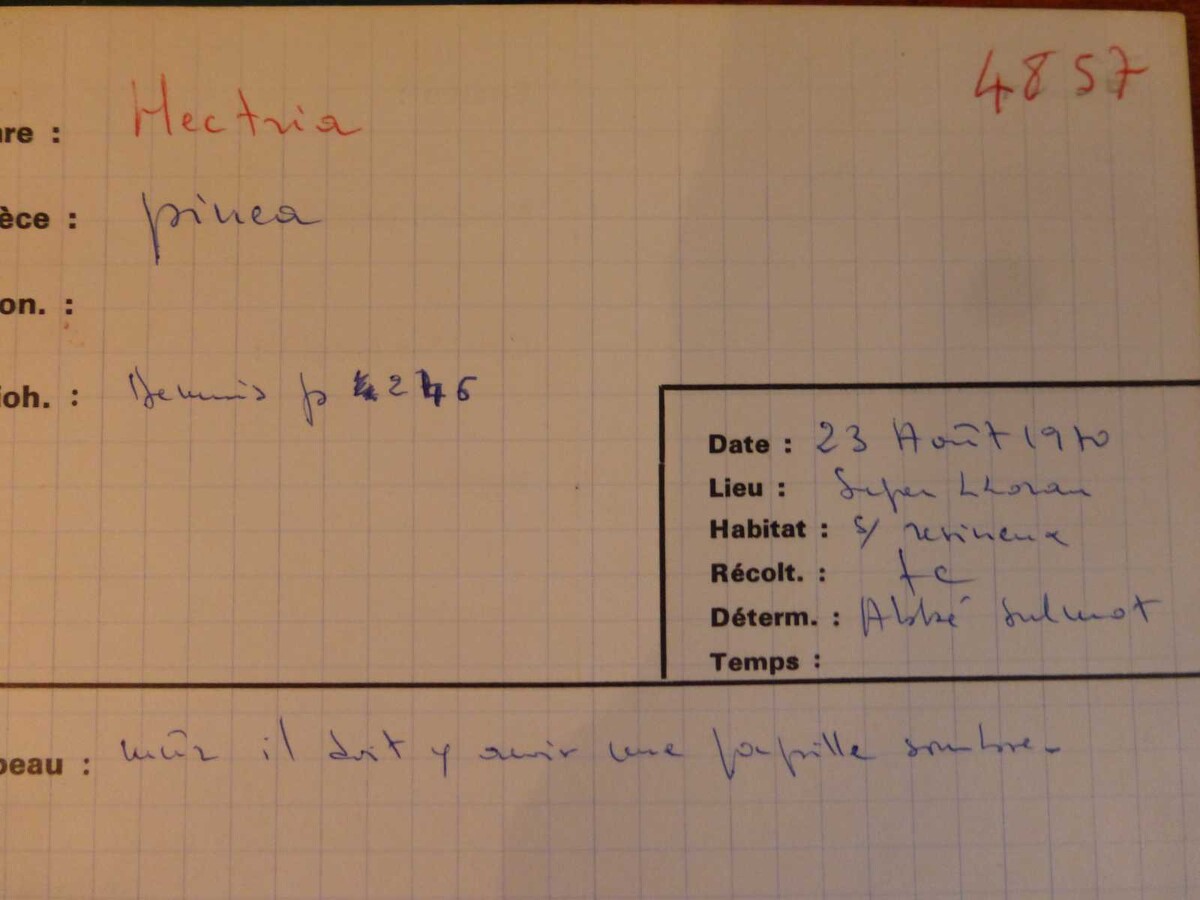 4857
re : Nectria
èce : pinea
on. :
ioh. : Dennis p 246
Date : 23 Août 1970
Lieu : Super Lioran
Habitat : s/ resineux
Récolt. :
Déterm. : Abbé
Temps :
peau : mûr il doit y avoir une papille sombre.